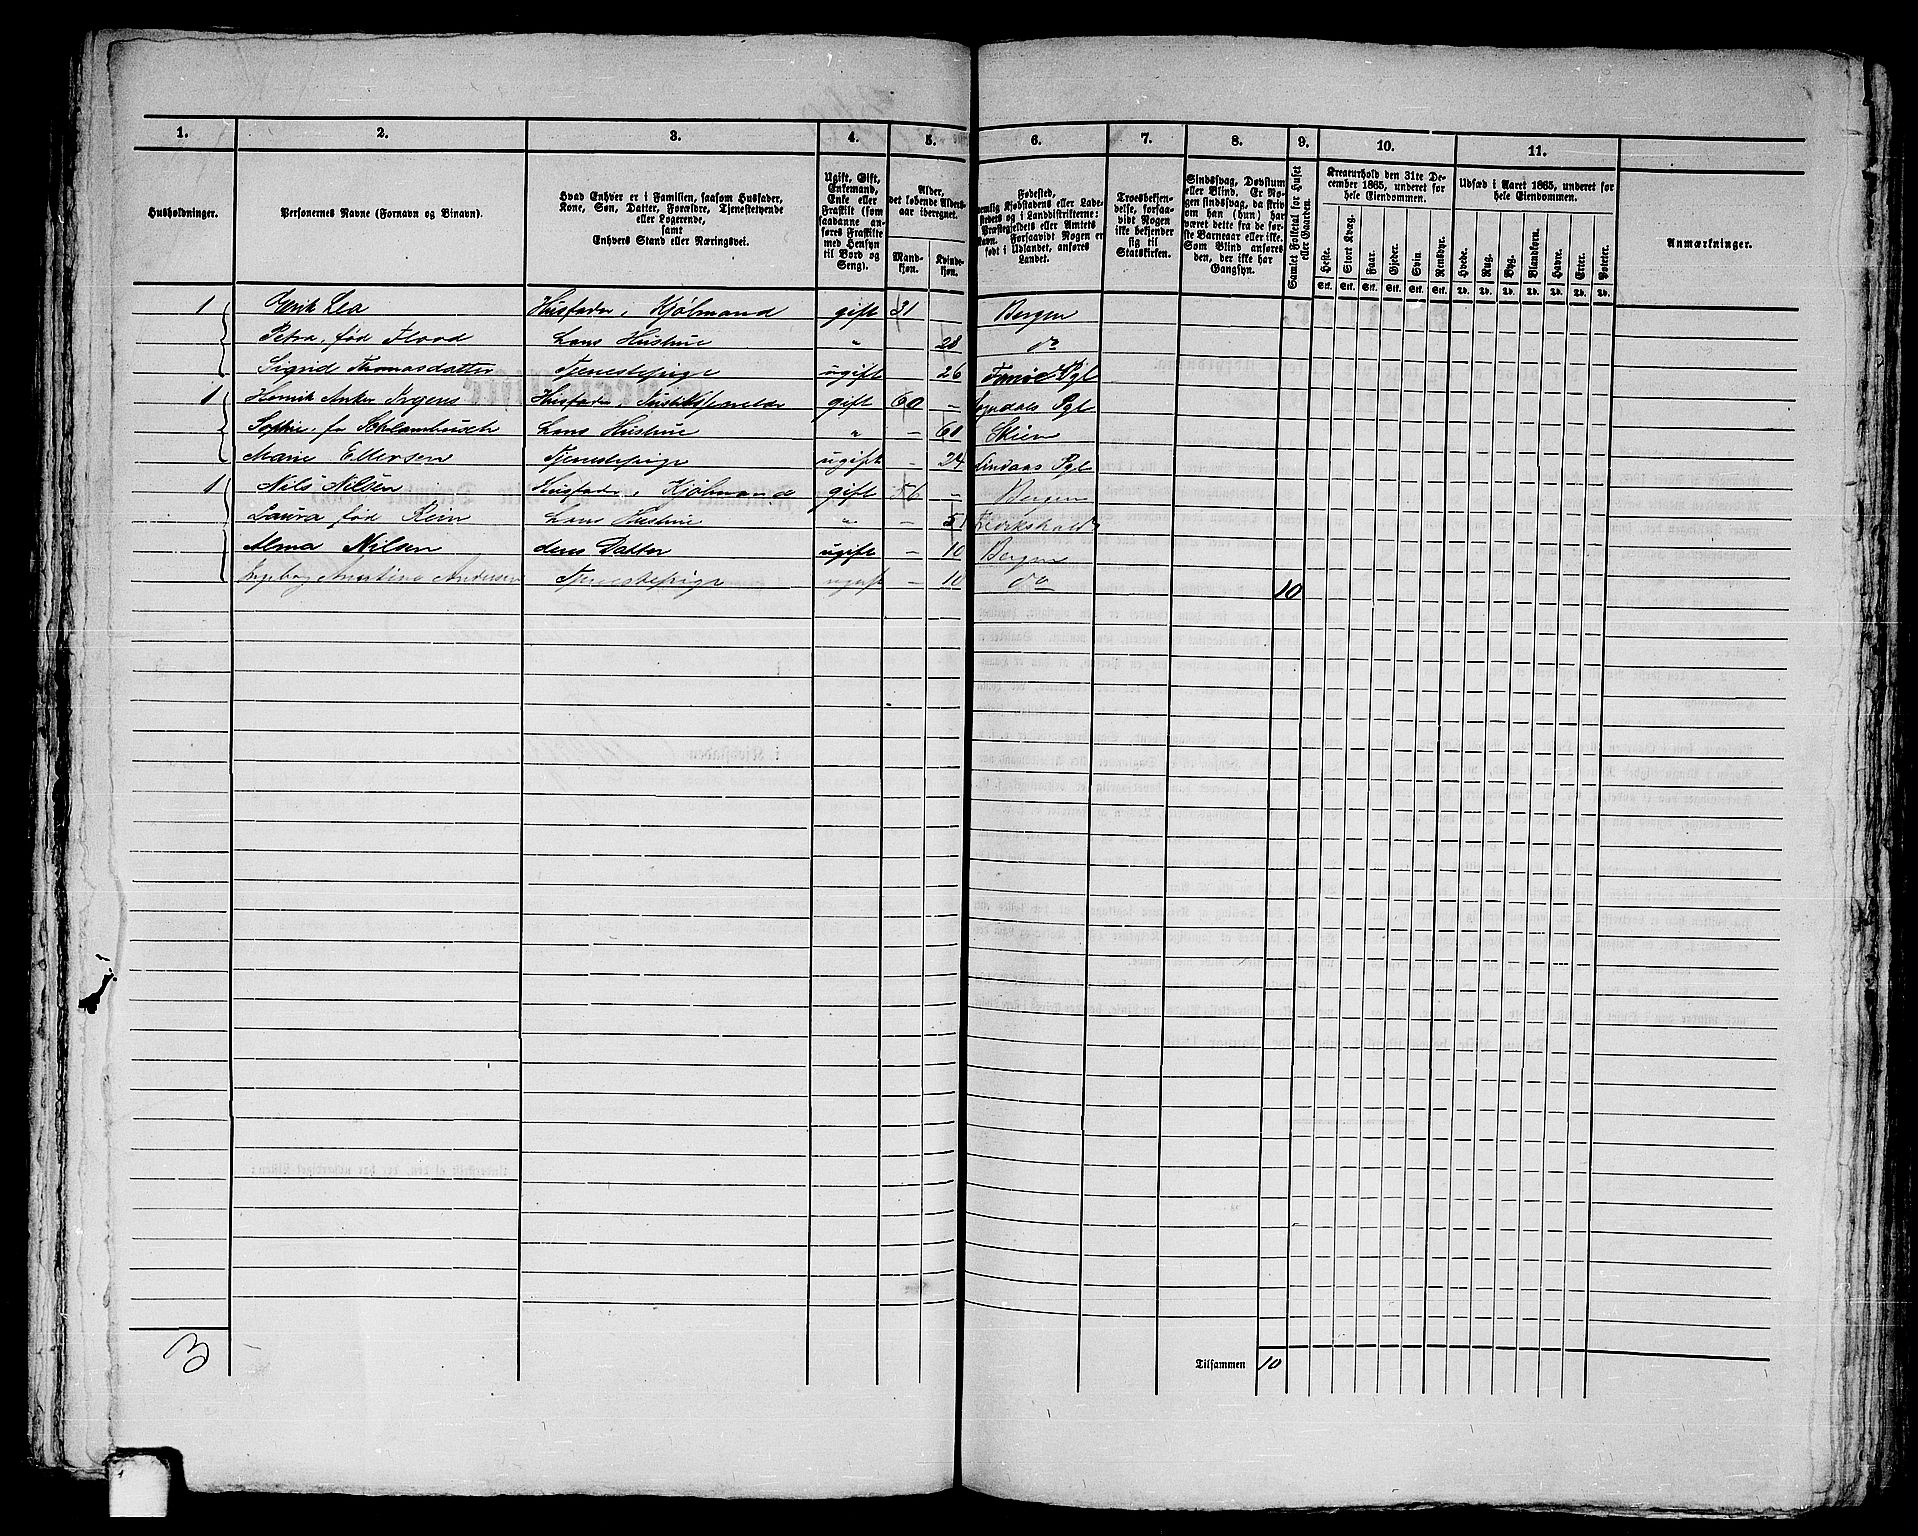 1. 2. 3. 4. 5. 6. 7. 8. 9. 10. 11.
Husholdninger.
Personernes Navne (Fornavn og Binavn).
Hvad Enhver er i Familien, saasom Husfader,
Kone, Søn, Datter, Forældre, Tjenestetyende
eller Logerende,
samt
Enhvers Stand eller Næringsvei.
Ugift, Gift,
Enkemand,
Enke eller
Fraskilt (som
saadanne anføres Fraskilte
med Hensyn
til Bord og
Seng).
Alder,
det løbende Alders-
aar iberegnet.
Mand-
kjøn.
Kvinde-
kjøn.
Fødested,
nemlig Kjøbstadens eller Lade-
stedets og i Landdistrikterne:
Præstegjeldets eller Amtets
Navn. Forsaavidt Nogen er
født i Udlandet, anføres
Landet.
Troesbekjen-
delse, forsaa-
vidt Nogen
ikke bekjender
sig til
Statskirken.
Sindssvag, Døvstum
eller Blind. Er No-
gen sindssvag, da skriv
om han (hun) har
været dette fra de før-
ste Barneaar eller ikke.
Som Blind anføres
den, der ikke har
Gangsyn.
Samlet Folketal for Huset
eller Gaarden.
Kreaturhold den 31te De-
cember 1865, underet for
hele Eiendommen.
Heste. Stort Kvæg. Faar. Gjeder. Svin. Rensdyr.
Stk. Stk. Stk. Stk. Stk. Stk.
Udsæd i Aaret 1865, underet for
hele Eiendommen.
Hvede. Rug. Byg. Blandkorn. Havre. Erter. Poteter.
Td. Td. Td. Td. Td. Td. Td.
Anmærkninger.
1 Lea Husfader, Kjølmand gift 31 Bergen
Petra, fød Flood Hans Hustrue " 28 do
Sigrid Thomasdatter Tjenestepige ugift 26 Pgl
1 Henrik Anker Husfader, gift 60 — Sogndals Pgl
Sophie, fø Hans Hustrue " — 61 Skien
Marie Ellersen Tjenestepige ugift — 24 Lindaas Pgl
1 Nils Nilsen Husfader, Kjølmand gift 56 — Bergen
Laura fød Rein Hans Hustrue " — 51 Fredrikshald
Alma Nilsen deres Datter ugift — 10 Bergen
Ingeborg Martine Andersen Tjenestepige ugift — do 10
3
Tilsammen 10